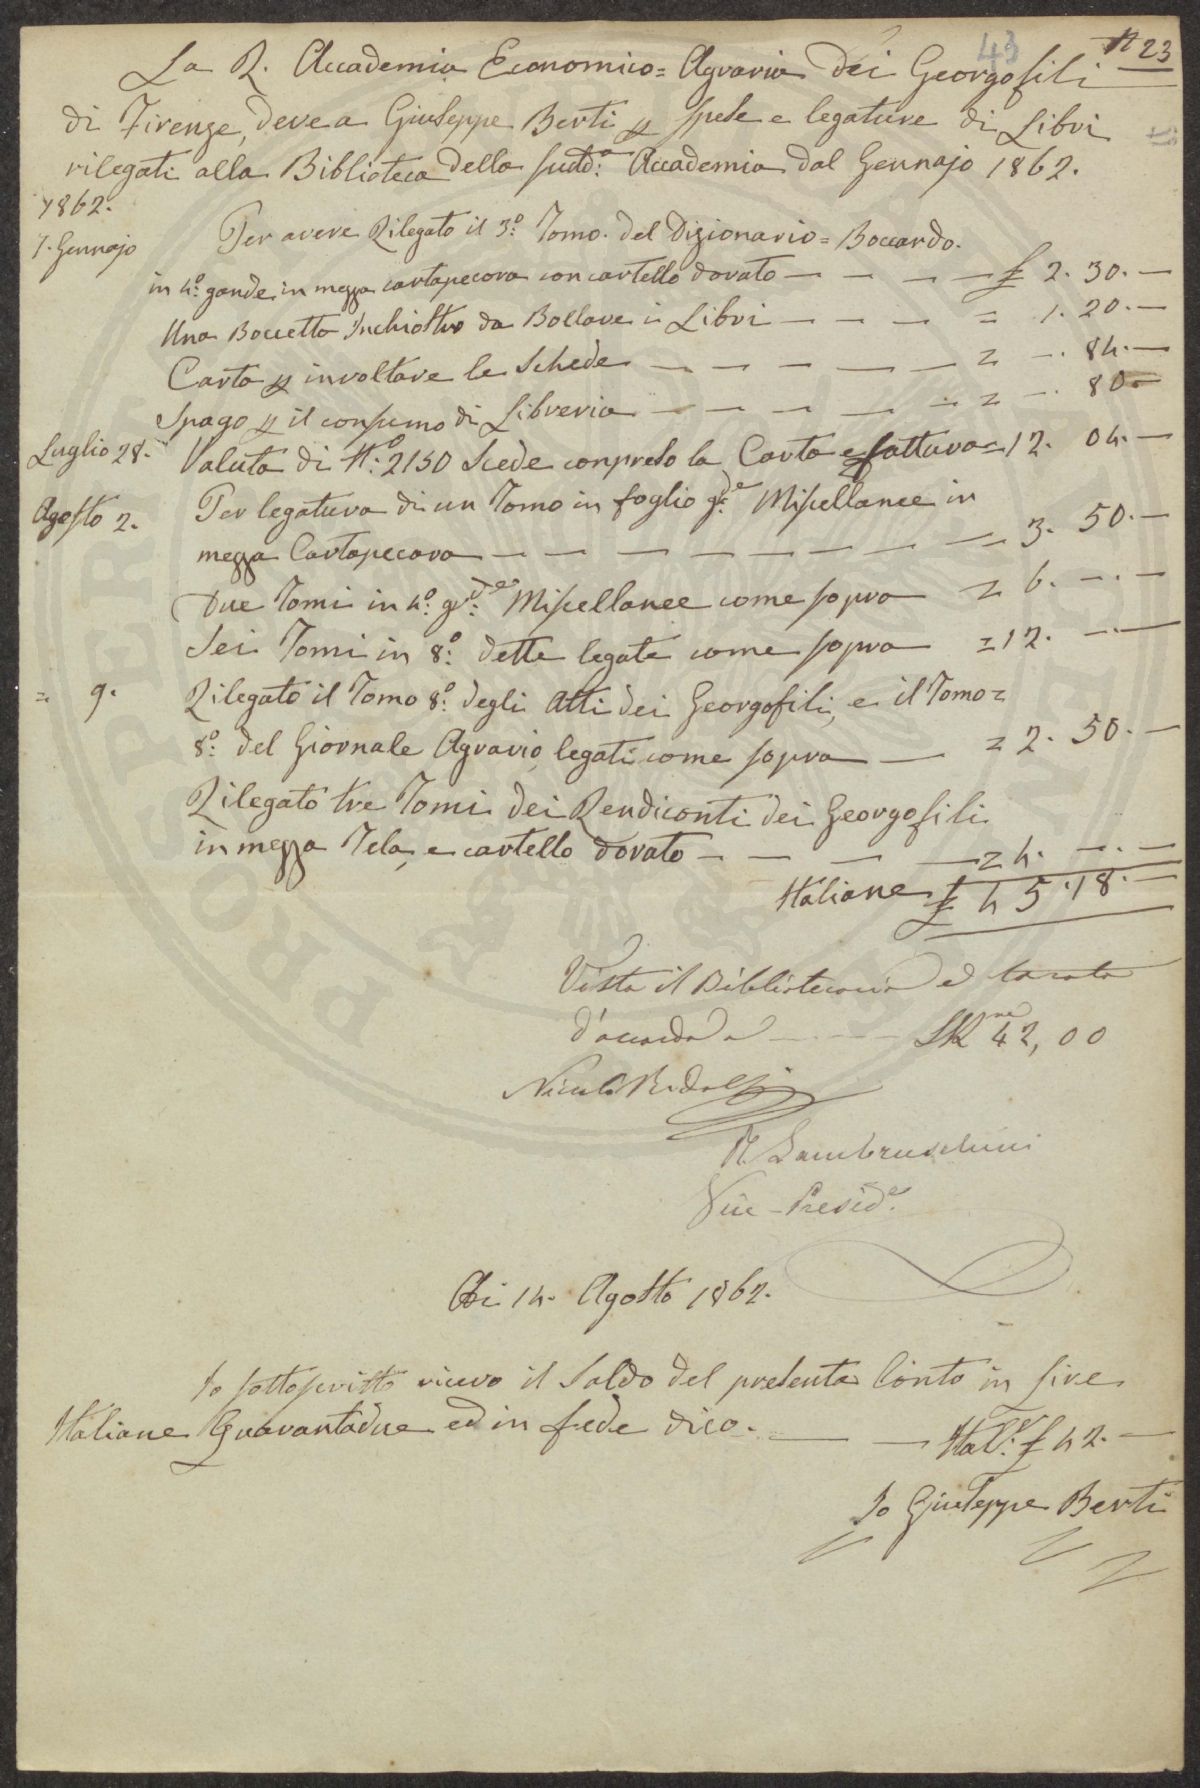 43
N 23
La R. Accademia Economico = Agraria dei Georgofili
di Firenze, deve a Giuseppe Berti p spese e legature di Libri
rilegati alla Biblioteca della sudd.a Accademia dal Gennajo 1862.
1862.
7. Gennajo Per avere Rilegato il 3.o Tomo. del Dizionario = Boccardo.
in 4.o gande in mezza cartapecora con cartello dorato — — — — £ 2. 30. —
Una Boccetta Inchiostro da Bollare i Libri — — — — = 1. 20. —
Carta p involtare le Schede — — — — — — = —. 84. —
Spago p il consumo di Libreria — — — — — = —. 80 —
Luglio 28. Valuta di N.o 2150 Scede conpreso la Carta e fattura = 12. 04. —
Agosto 2. Per legatura di un Tomo in foglio g.de Miscellanee in
mezza Cartapecora — — — — — — — — = 3. 50. —
Due Tomi in 4.o g.de Miscellanee come sopra = 6. —. —
Sei Tomi in 8.o dette legate come sopra = 12. —. —
= 9. Rilegato il Tomo 8.o degli Atti dei Georgofili, e il Tomo =
8.o del Giornale Agrario, legati come sopra — = 2. 50. —
Rilegato tre Tomi dei Rendiconti dei Georgofili
in mezza Tela, e cartello dorato — — — — = 4. —. —
Italiane £ 45. 18. —
Visto il Bibliotecario e tarato
d'accordo a — — — £It.ne 42,00
Nicolò Ridolfi
R. Lambruschini
Vice-Presid.e
Adi 14. Agosto 1862.
Io sottoscritto ricevo il Saldo del presente Conto in Lire
Italiane Quarantadue ed in fede dico. — — Ital.e £ 42. —
Io Giuseppe Berti